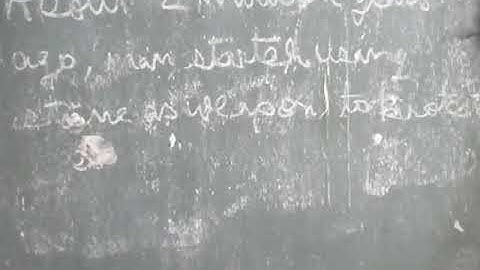 About 2 million years
ago, man started using
stone as weapon to protect